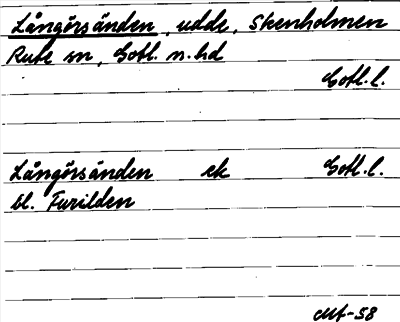 Långörsänden, udde, Skenholmen
Rute sn, Gotl. n. hd
Gotl. l.
Långörsänden ek Gotl. l.
bl. Furilden
-58